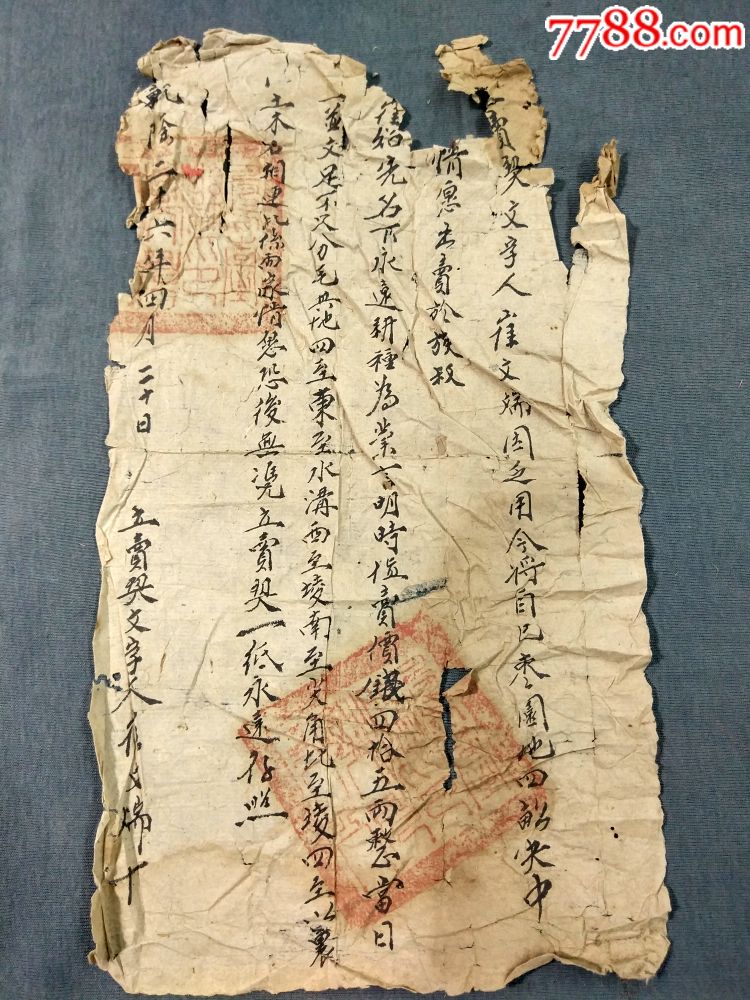 7788.com
賣契文字人崔文瑞因乏用今將自己枣園地四畝央中
情愿出賣於族叔
崔紹先名下永遠耕種為業言明時值賣價銀四拾五兩整當日
文足不欠分毛其地四至東至水溝西至堎南至尖角北至堎四至以裏
土木石相連此係两家情愿恐後無凭立賣契一纸永遠存照
乾隆二十六年四月二十日
立賣契文字人崔文瑞十